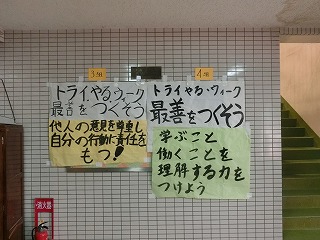 3組
トライやる・ウィーク
最善をつくそう
他人の意見を尊重し
自分の行動に責任を
もつ!
4組
トライやる・ウィーク
最善をつくそう
学ぶこと
働くことを
理解する力を
つけよう
消火器